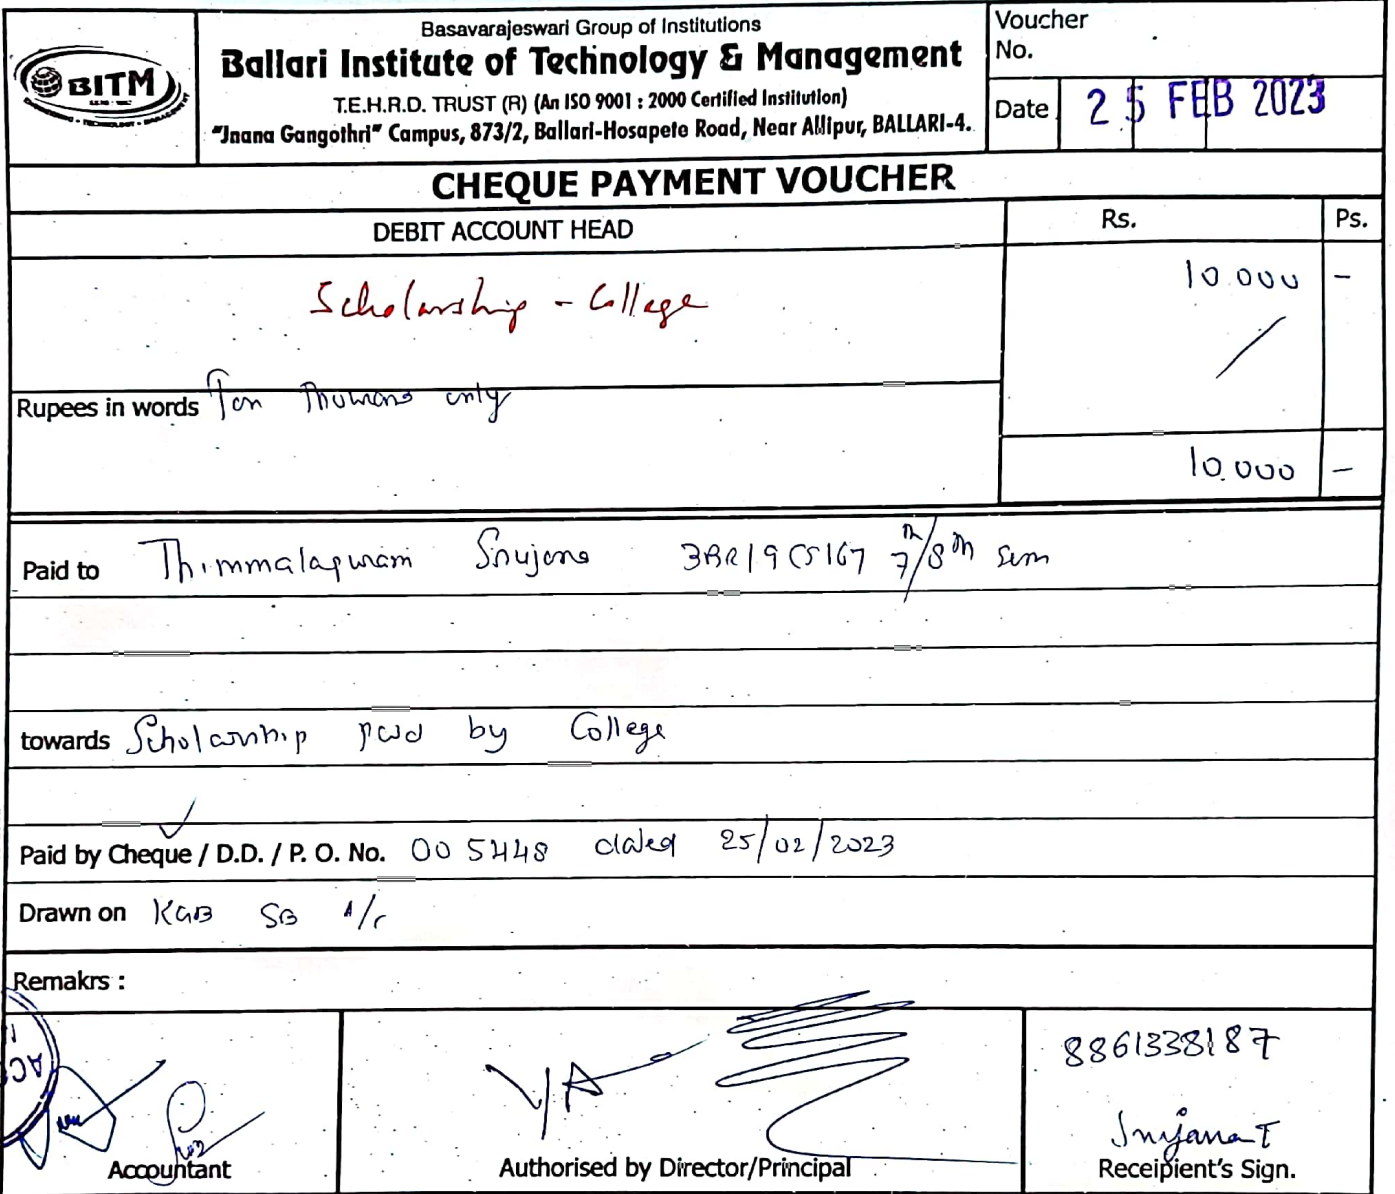 Basavarajeswari Group of Institutions
Ballari Institute of Technology & Management
T.E.H.R.D. TRUST (R) (An ISO 9001 : 2000 Certified Institution)
"Jnana Gangothri" Campus, 873/2, Ballari-Hosapete Road, Near Allipur, BALLARI-4.
BITM
Voucher
No.
Date 25 FEB 2023
CHEQUE PAYMENT VOUCHER
DEBIT ACCOUNT HEAD Rs. Ps.
Scholarship - College 10.000 -
Rupees in words Ten Thousand only
10.000 -
Paid to Thimmalapuram Srujana 3BR19CS167 7th/8th sem
towards Scholarship paid by College
Paid by Cheque / D.D. / P. O. No. 005448 dated 25/02/2023
Drawn on KGB SB A/c
Remakrs :
8861338187
Srujana T
Accountant Authorised by Director/Principal Receipient's Sign.